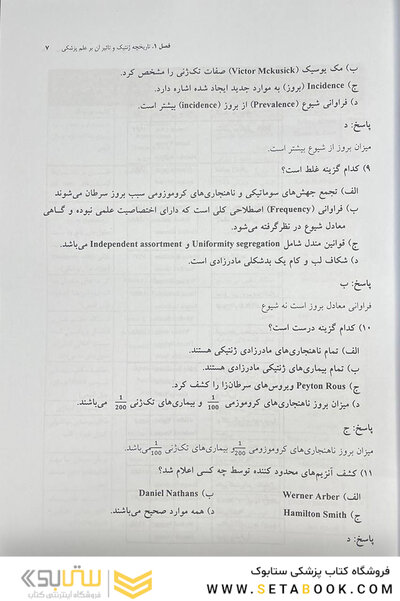 فصل ۱. تاریخچه ژنتیک و تاثیر آن بر علم پزشکی ۷
ب) مک یوسیک (Victor Mckusick) صفات تک‌ژنی را مشخص کرد.
ج) Incidence (بروز) به موارد جدید ایجاد شده اشاره دارد.
د) فراوانی شیوع (Prevalence) از بروز (incidence) بیشتر است.
پاسخ: د
میزان بروز از شیوع بیشتر است.
۹) کدام گزینه غلط است؟
الف) تجمع جهش‌های سوماتیکی و ناهنجاری‌های کروموزومی سبب بروز سرطان می‌شوند
ب) فراوانی (Frequency) اصطلاحی کلی است که دارای اختصاصیت علمی نبوده و گاهی
معادل شیوع در نظرگرفته می‌شود.
ج) قوانین مندل شامل Uniformity segregation و Independent assortment می‌باشد.
د) شکاف لب و کام یک بدشکلی مادرزادی است.
پاسخ: ب
فراوانی معادل بروز است نه شیوع
۱۰) کدام گزینه درست است؟
الف) تمام ناهنجاری‌های مادرزادی ژنتیکی هستند.
ب) تمام بیماری‌های ژنتیکی مادرزادی هستند.
ج) Peyton Rous ویروس‌های سرطان‌زا را کشف کرد.
د) میزان بروز ناهنجاری‌های کروموزمی 1/100 و بیماری‌های تک‌ژنی 1/200 می‌باشند.
پاسخ: ج
میزان بروز ناهنجاری‌های کروموزومی 1/200 و بیماری‌های تک‌ژنی 1/100 می‌باشد.
۱۱) کشف آنزیم‌های محدود کننده توسط چه کسی اعلام شد؟
الف) Werner Arber ب) Daniel Nathans
ج) Hamilton Smith د) همه موارد صحیح می‌باشند.
پاسخ: د
فروشگاه کتاب پزشکی ستابوک
WWW.SETABOOK.COM
ستابوک
فروشگاه اینترنتی کتاب